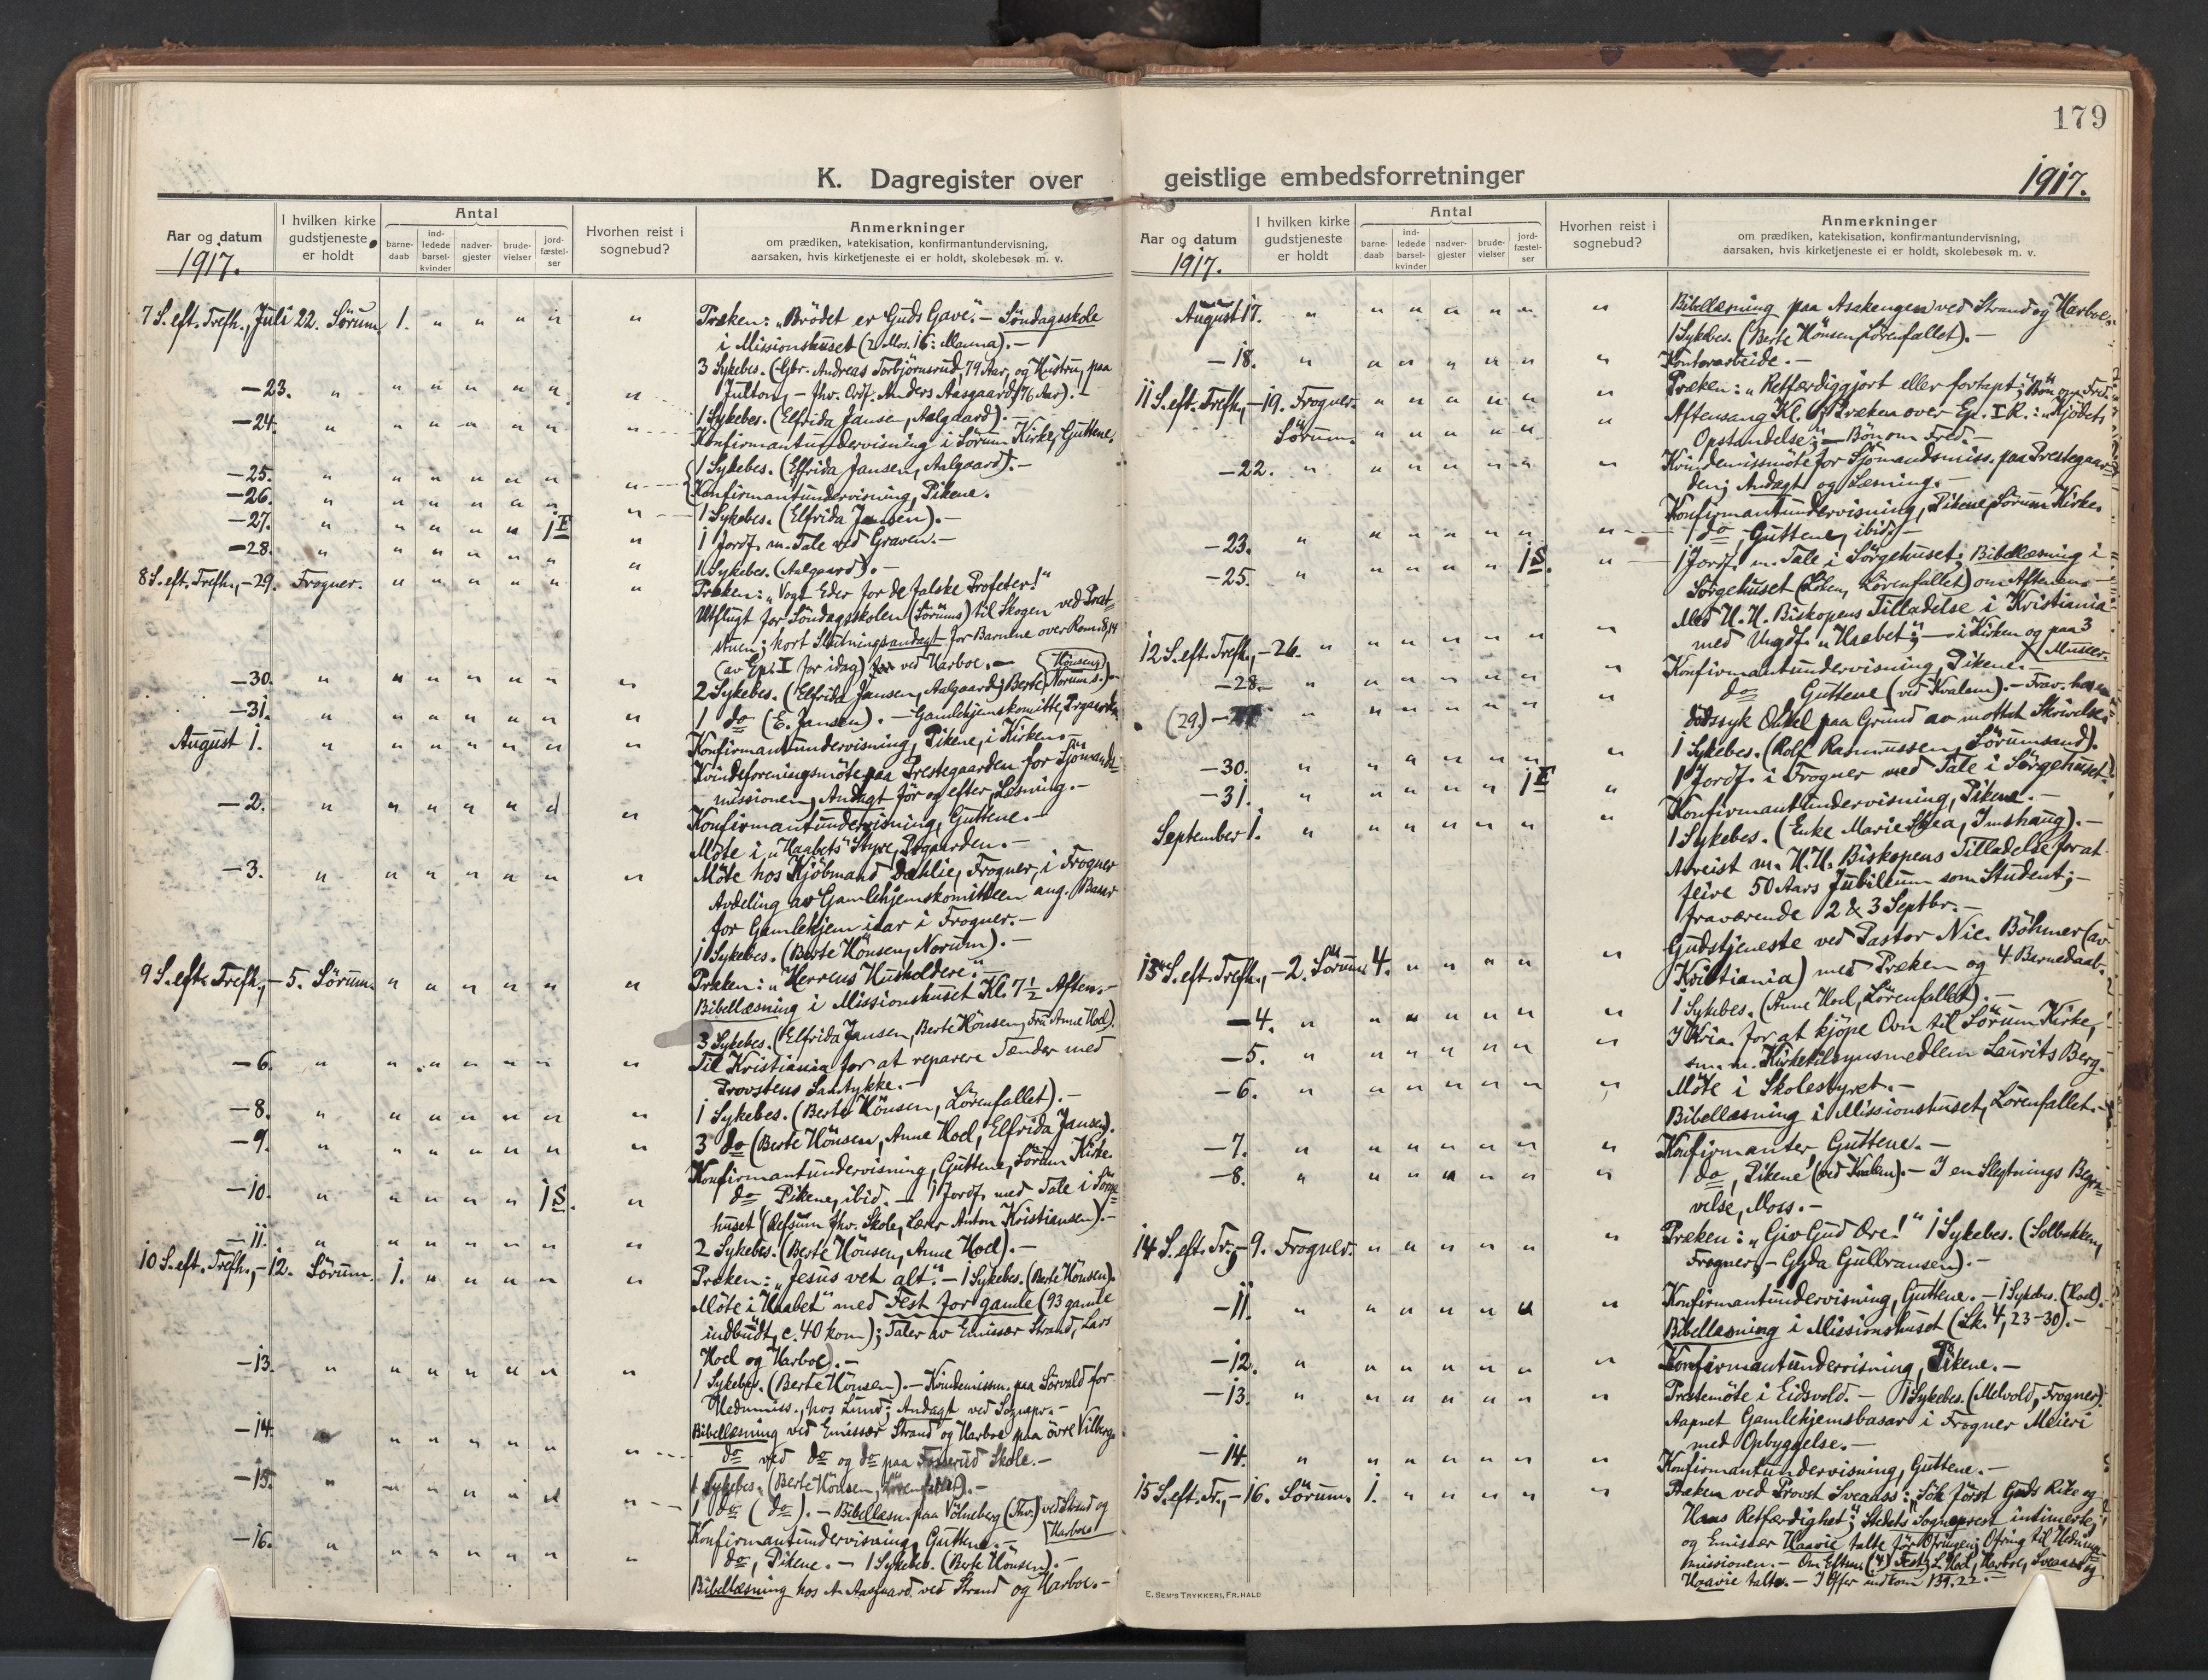 179
K. Dagregister over
geistlige embedsforretninger
1917.
Aar og datum
1917.
I hvilken kirke
gudstjeneste
er holdt
Antal
barne-
daab
ind-
ledede
barsel-
kvinder
nadver-
gjester
brude-
vielser
jord-
fæstel-
ser
Hvorhen reist i
sognebud?
Anmerkninger
om prædiken, katekisation, konfirmantundervisning,
aarsaken, hvis kirketjeneste ei er holdt, skolebesøk m. v.
7 S. eft. Trefh., Juli 22. Sörum. 1. " " " " " Præken: "Brödet er Guds Gave". – Söndagsskole
i Missionshuset (2 Mos. 16: Manna). –
3 Sykebes. (Gbr. Andreas Torbjörnsrud, 79 Aar, og Hustru, paa
– 23. " " " " " " " Julton, – fhv. Ordf. Anders Aasgaard, 76 Aar). –
1 Sykebes. (Elfrida Jansen, Aalgaard). –
– 24. " " " " " " " Konfirmantundervisning i Sörum Kirke, Guttene.
1 Sykebes. (Elfrida Jansen, Aalgaard). –
– 25. " " " " " " " Konfirmantundervisning, Pikene.
– 26. " " " " " " " 1 Sykebes. (Elfrida Jansen). –
– 27. " " " " " 1 F " 1 Jordf. m. Tale ved Graven. –
– 28. " " " " " " " 1 Sykebes. (Aalgaard). –
8 S. eft. Trefh., – 29. Frogner. " " " " " " Præken: "Vogt Eder for de falske Profeter!"
Utflugt for Söndagsskolen (Sörums) til Skogen ved Præst-
stuen; kort Slutningsandagt for Barnene over Rom. 8,14
(av Ep. I for idag) ved Harboe. –
– 30. " " " " " " " 2 Sykebes. (Elfrida Jansen, Aalgaard; Berte Hönsen, Norum s.) –
– 31. " " " " " " " 1 do (E. Jansen). – Gamlehjemskomitte, Prgaarden.
August 1. " " " " " " " Konfirmantundervisning, Pikene, i Kirken. –
Kvindeforeningsmöte paa Prestegaarden for Sjömands-
missionen, Andagt för og efter Læsning. –
– 2. " " " " " " " Konfirmantundervisning, Guttene. –
Möte i "Haabets" Styre, Prgaarden. –
– 3. " " " " " " " Möte hos Kjöbmand Dahlie, Frogner, i Frogner
Avdeling av Gamlehjemskomitteen ang. Basar
for Gamlehjem iaar i Frogner. –
1 Sykebes. (Berte Hönsen, Norum). –
9 S. eft. Trefh., – 5. Sörum. " " " " " " Præken: "Herrens Husholdere". –
Bibellæsning i Missionshuset Kl. 7 1/2 Aften. –
3 Sykebes. (Elfrida Jansen, Berte Hönsen, Fru Anne Hoel).
– 6. " " " " " " " Til Kristiania for at reparere Tænder med
Provstens Samtykke. –
– 8. " " " " " " " 1 Sykebes. (Berte Hönsen, Lörenfallet). –
– 9. " " " " " " " 3 do (Berte Hönsen, Anne Hoel, Elfrida Jansen).
Konfirmantundervisning, Guttene, Sörum Kirke.
– 10. " " " " " 1 S. " do Pikene, ibid. – 1 Jordf. med Tale i Sörge-
huset (Refsum fhv. Skole, Lærer Anton Kristiansen). –
– 11. " " " " " " " 2 Sykebes. (Berte Hönsen, Anne Hoel). –
10 S. eft. Trefh., – 12. Sörum. 1. " " " " " Præken: "Jesus vet alt". – 1 Sykebes. (Berte Hönsen).
Möte i "Haabet" med Fest for gamle (93 gamle
indbudt, c. 40 kom); Taler av Emissær Strand, Lars
Hoel og Harboe). –
– 13. " " " " " " " 1 Sykebes. (Berte Hönsen). – Kvindemissm. paa Sörvald for
Hedmiss., hos Lund; Andagt ved Sognepr. –
– 14. " " " " " " Bibellæsning ved Emissær Strand og Harboe paa övre Vilberg.
do ved do og do paa Fosserud Skole. –
– 15. " " " " " " " 1 Sykebes. (Berte Hönsen, Lörenfallet). –
1 do (do). – Bibellæsn. paa Völneberg (Thv.) ved Strand og
Harboe
– 16. " " " " " " " Konfirmantundervisning, Guttene. –
do, Pikene. – 1 Sykebes. (Berte Hönsen). –
Bibellæsning hos A. Aasgaard ved Strand og Harboe. –
Aar og datum
1917.
I hvilken kirke
gudstjeneste
er holdt
Antal
barne-
daab
ind-
ledede
barsel-
kvinder
nadver-
gjester
brude-
vielser
jord-
fæstel-
ser
Hvorhen reist i
sognebud?
Anmerkninger
om prædiken, katekisation, konfirmantundervisning,
aarsaken, hvis kirketjeneste ei er holdt, skolebesøk m. v.
August 17. " " " " " " " Bibellæsning paa Asakengen ved Strand og Harboe.
1 Sykebes. (Berte Hönsen, Lörenfallet). –
– 18. " " " " " " " Kontorarbeide. –
11 S. eft. Trefh., – 19. Frogner. " " " " " " Præken: "Retfærdiggjort eller fortapt"; Bön om Fred.
Sörum. " " " " " " Aftensang Kl. 6; Præken over Ep. I R.: "Kjödets
Opstandelse"; – Bön om Fred. –
– 22. " " " " " " " Kvindemissmöte for Sjömandsmiss. paa Prestegaar-
den; Andagt og Læsning. –
Konfirmantundervisning, Pikene, Sörum Kirke.
– 23. " " " " " " " do, Guttene, ibid. –
– 25. " " " " " 1 S. " 1 Jordf. m. Tale i Sörgehuset; Bibellæsning i
Sörgehuset (Löken, Lörenfallet) om Aftenen. –
12 S. eft. Trefh., – 26. " " " " " " " Med H. H. Biskopens Tilladelse i Kristiania
med Ungdf. "Haabet"; – i Kirken og paa 3
Museer.
– 28. " " " " " " " Konfirmantundervisning, Pikene. –
(29) – " " " " " " " do, Guttene (ved Kvalem). – Frav. hos en
dödssyk Onkel paa Grund av mottat Skrivelse.
– 30. " " " " " " " 1 Sykebes. (Rolf Rasmussen, Sörumsand).
– 31. " " " " " 1 F " 1 Jordf. i Frogner med Tale i Sörgehuset.
September 1. " " " " " " " Konfirmantundervisning, Pikene. –
1 Sykebes. (Enke Marie Skea, Imshaug). –
Avreist m. H. H. Biskopens Tilladelse for at
feire 50 Aars Jubilæum som Student; –
fraværende 2 & 3 Septbr. –
13 S. eft. Trefh., – 2. Sörum. 4. " " " " " Gudstjeneste ved Pastor Nic. Böhmer (av
Kristiania) med Præken og 4 Barnedaab.
– 4. " " " " " " " 1 Sykebes. (Anne Hoel, Lörenfallet). –
– 5. " " " " " " " I Kria. for at kjöpe Ovn til Sörum Kirke,
sm. m. Kirketilsynsmedlem Laurits Berg.
– 6. " " " " " " " Möte i Skolestyret. –
Bibellæsning i Missionshuset, Lörenfallet. –
– 7. " " " " " " " Konfirmanter, Guttene. –
– 8. " " " " " " " do, Pikene (ved Kvalem). – I en Slegtnings Begra-
velse, Moss. –
14 S. eft. Tr., – 9. Frogner. " " " " " " Præken: "Giv Gud Ære!" 1 Sykebes. (Solbakken,
Frogner, – Gyda Gulbransen). –
– 11. " " " " " " " Konfirmantundervisning, Guttene. – 1 Sykebes. (Hoel).
Bibellæsning i Missionshuset (Lk. 4, 23-30). –
– 12. " " " " " " " Konfirmantundervisning, Pikene. –
– 13. " " " " " " " Prestemöte i Eidsvold. – 1 Sykebes. (Melvold, Frogner).
Aapnet Gamlehjemsbasar i Frogner Meieri
med Opbyggelse. –
– 14. " " " " " " " Konfirmantundervisning, Guttene. –
15 S. eft. Tr., – 16. Sörum. 1. " " " " " Præken ved Provst Sveaass: "Sök först Guds Rike og
Hans Retfærdighet"; Stedets Sogneprest intimerte,
og Emissær Haavie talte för Ofringen; Ofring til Hedninge-
missionen. – Om Efterm. (4) Fest; L. Hoel, Harboe, Sveaass og
Haavie talte. – I Offer indkom 139.22. –
E. SEM'S TRYKKERI, FR.HALD